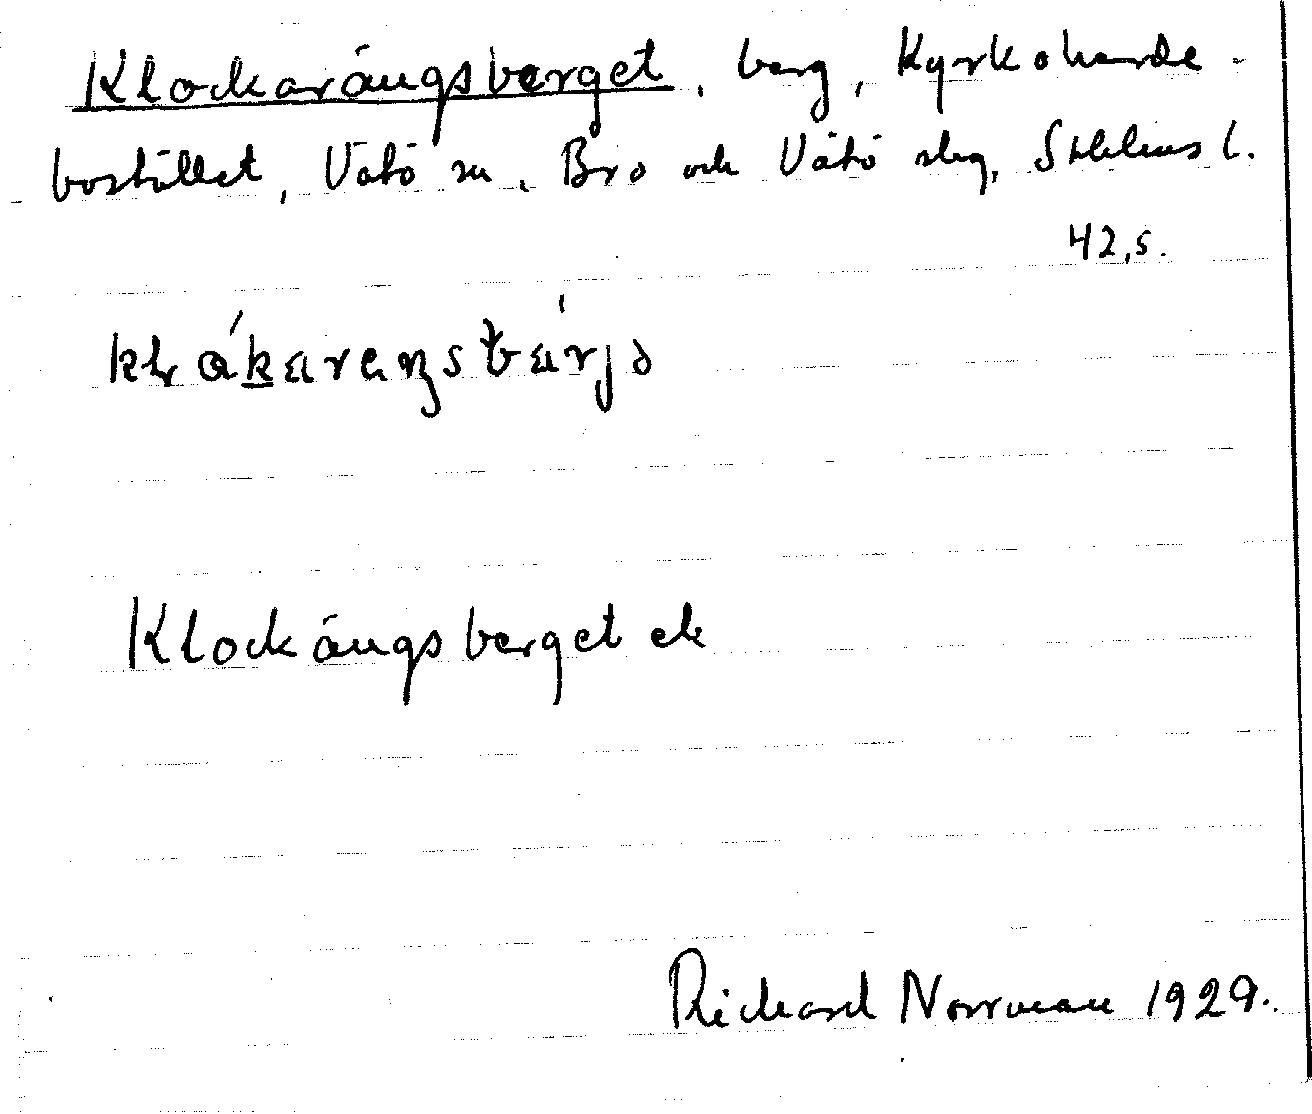 Klockarängsberget, berg, Kyrkoherde-
bostället, Vätö sn, Bro och Vätö skg, Sthlms l.
42,5.
Klockängsberget ek
Richard Norrman 1929.